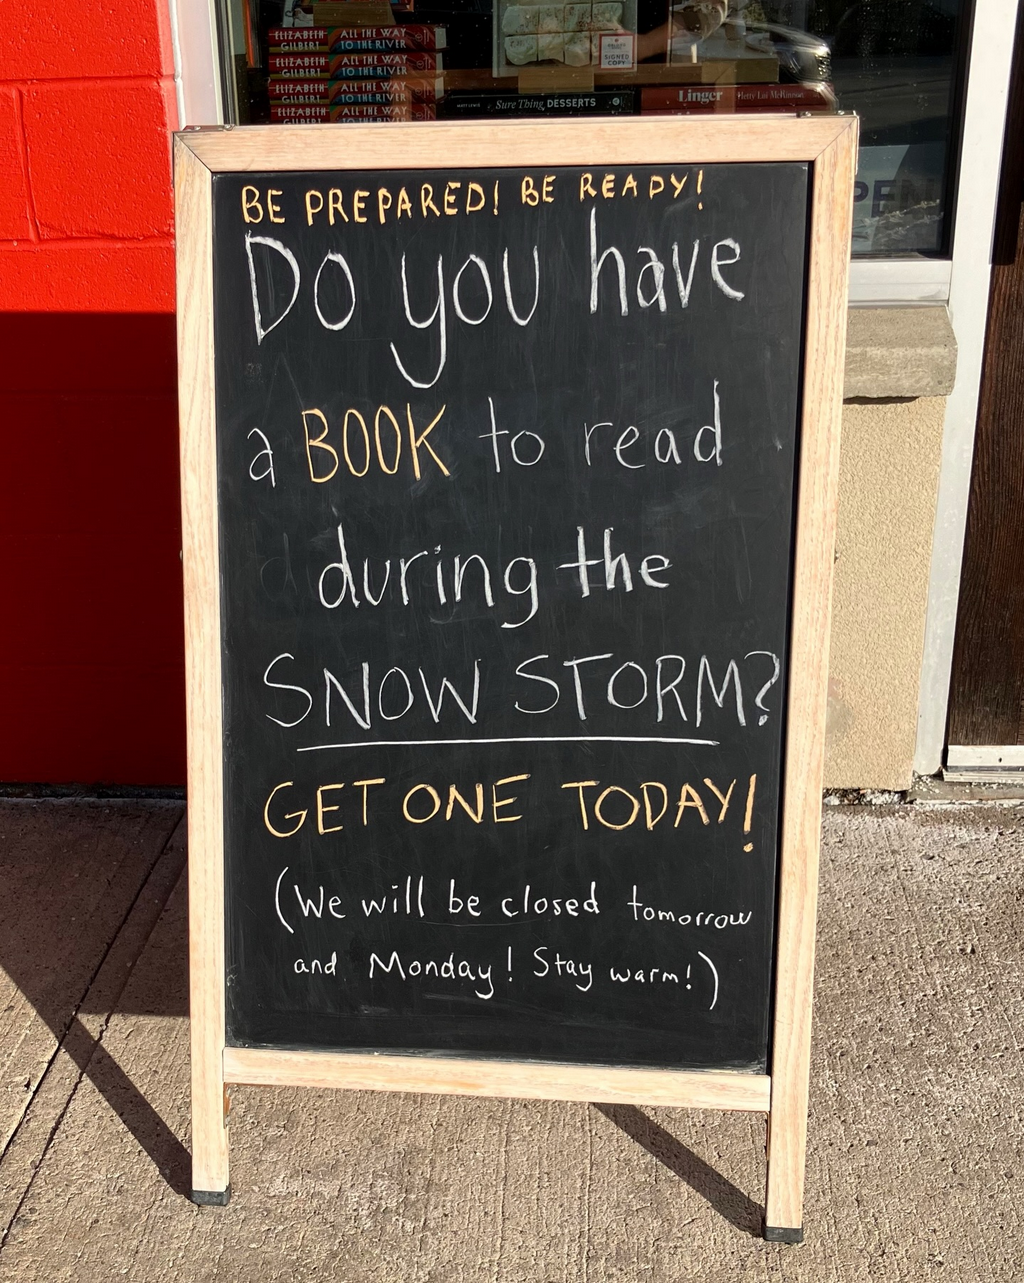 ELIZABETH GILBERT ALL THE WAY TO THE RIVER
ELIZABETH GILBERT ALL THE WAY TO THE RIVER
ELIZABETH GILBERT ALL THE WAY TO THE RIVER
ELIZABETH GILBERT ALL THE WAY TO THE RIVER
SIGNED
COPY
MATT LEWIS Sure Thing DESSERTS
Linger Hetty Lui McKinnon
OPEN
BE PREPARED! BE READY!
Do you have
a BOOK to read
during the
SNOW STORM?
GET ONE TODAY!
(We will be closed tomorrow
and Monday! Stay warm!)